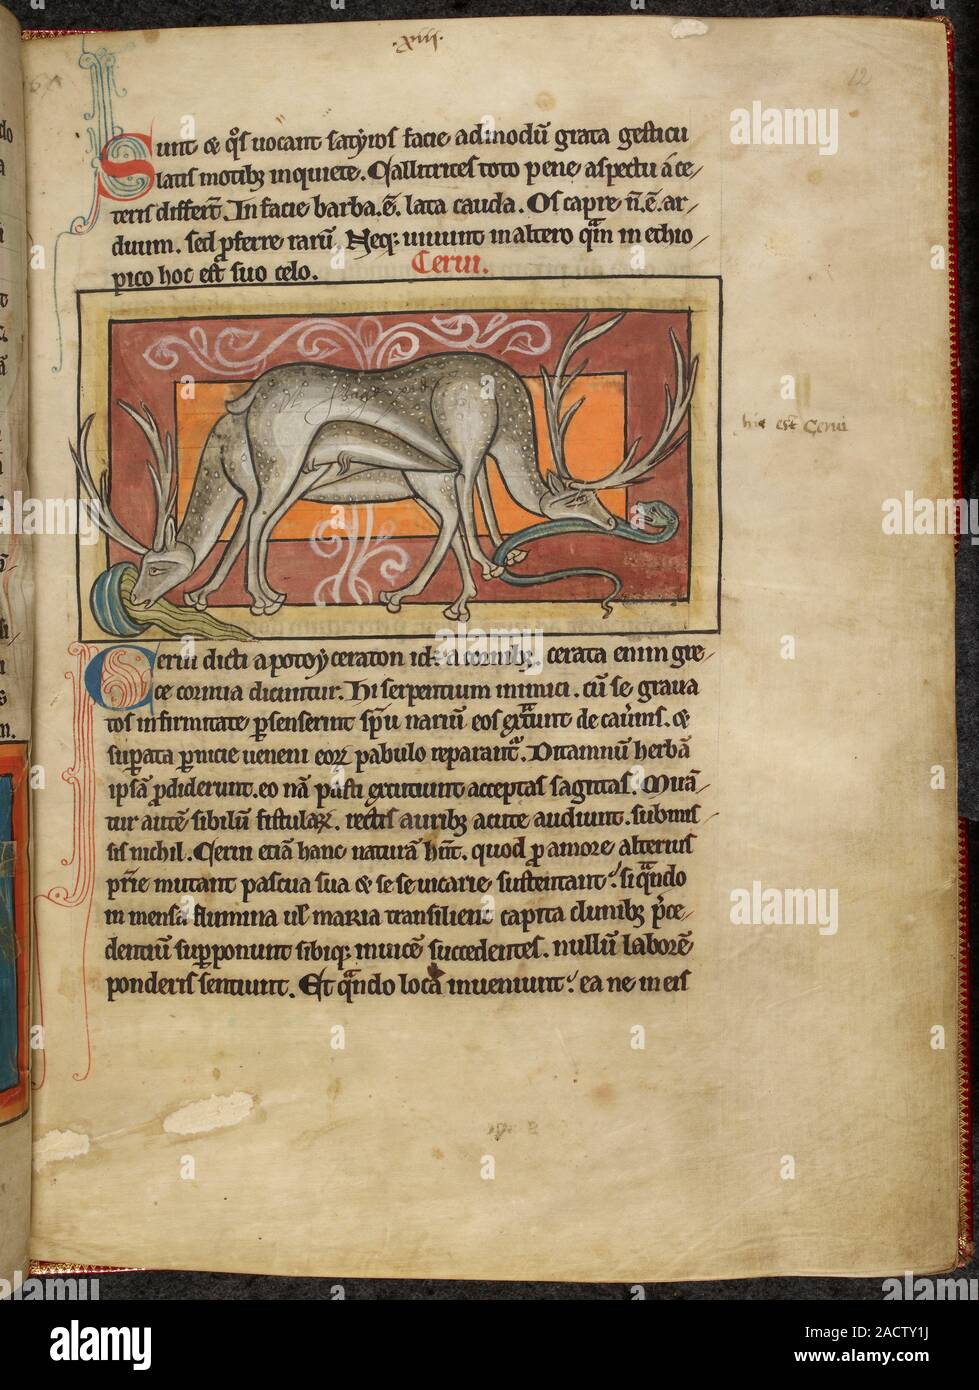 .xiii.
12
Sunt ⁊ q̊s uocant satẏros facie admodū grata gesticu
latis motibꝫ inquiete. Callitrices toto pene aspectu a ce/
teris differt̄. In facie barba .ē. lata cauda. Os capre n̄ .ē. ar/
duum. sed ꝑferre rarū. Neqꝫ uiuunt in altero qm̄ in ethio/
pico hoc est suo celo.
Cerui.
hic est Cerui
Cerui dicti apo toy ceraton id ÷ a cornibꝫ. cerata enim gre/
ce cornua dicuntur. Hi serpentium inimici. cū se graua
tos infirmitate ꝑsenserint sp̄u nariū eos ext̾hunt de cau̾nis. ⁊
suꝑata ꝑnicie ueneni eoꝝ pabulo reparant᷑. Ditamnū herbā
ipsā ꝓdiderunt. eo nā pasti excutiunt acceptas sagittas. Mirā/
tur autē sibilū fistulaꝝ. rectis auribꝫ acute audiunt. submis/
sis nichil. Cerui etiā hanc naturā hn̄t. quod ꝓ amore alterius
prie mutant pascua sua ⁊ se se uicarie sustentant. si qn̄do
inmensa flumina ul̄ maria transilient capita clunibꝫ p̄ce/
dentiū suꝑponunt sibiqꝫ inuicē succedentes. nullū laborē
ponderis sentiunt. Et qn̄do loca inueniunt. ea ne in eis
alamy
Image ID: 2ACTY1J
www.alamy.com